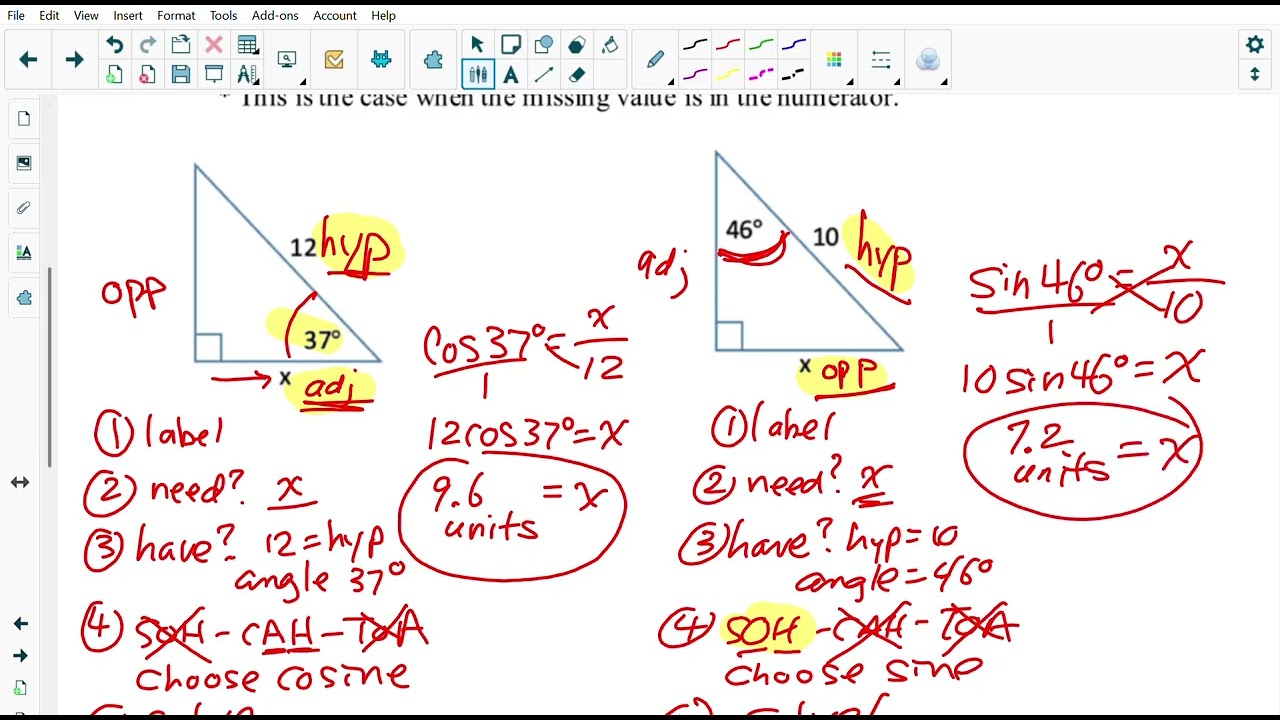 File Edit View Insert Format Tools Add-ons Account Help
* This is the case when the missing value is in the numerator.
opp
12 hyp
37°
x adj
cos37° = x/12
1
12cos37° = x
9.6 units = x
① label
② need? x
③ have? 12 = hyp
angle 37°
④ SOH - CAH - TOA
choose cosine
adj
46°
10 hyp
x opp
sin46° = x/10
1
10sin46° = x
7.2 units = x
① label
② need? x
③ have? hyp = 10
angle = 46°
④ SOH - CAH - TOA
choose sine